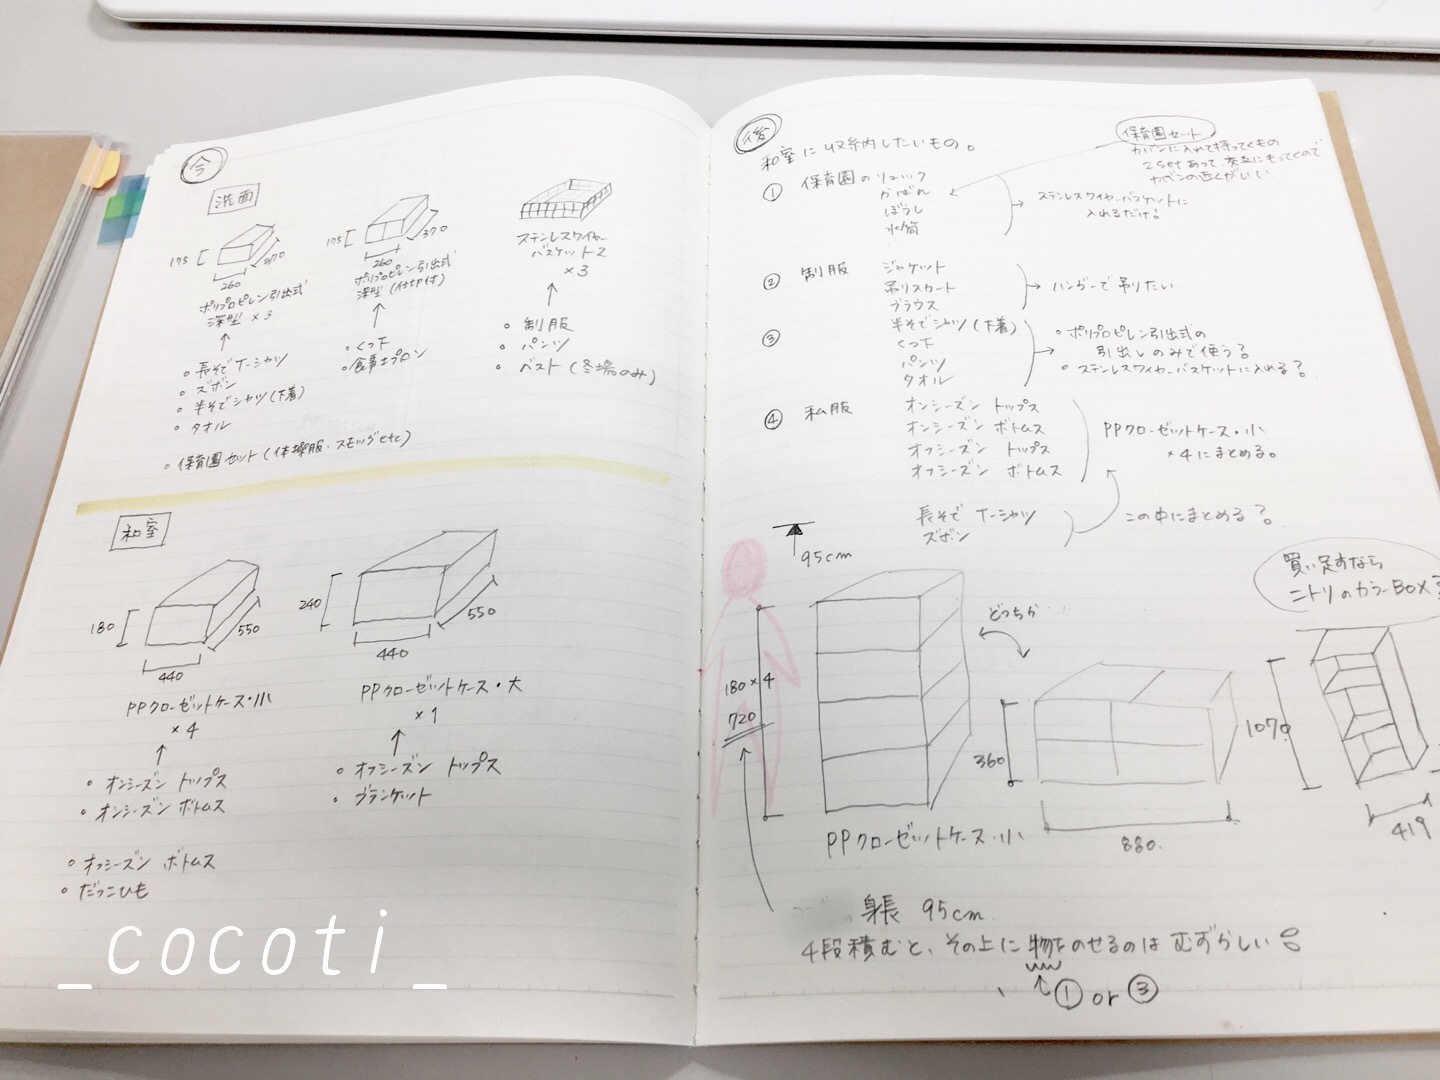 今
洗面
175
260
370
ポリプロピレン引出式
深型 × 3
・長そでTーシャツ
・ズボン
・半そでシャツ(下着)
・タオル
・保育園セット(体操服・スモックetc)
175
260
370
ポリプロピレン引出式
深型(仕切付)
・くつ下
・食事エプロン
ステンレスワイヤー
バスケット2
×3
・制服
・パンツ
・ベスト(冬場のみ)
和室
180
440
550
PPクローゼットケース・小
×4
・オンシーズン トップス
・オンシーズン ボトムス
・オフシーズン ボトムス
・だっこひも
240
440
550
PPクローゼットケース・大
×1
・オフシーズン トップス
・ブランケット
_cocoti_
後
和室に収納したいもの。
保育園セット
カバンに入れて持ってくもの
2setあって交互にもってくので
カバンの近くがいい
① 保育園のリュック
かばん
ぼうし
水筒
ステンレスワイヤーバスケットに
入れるだけ!
② 制服 ジャケット
吊りスカート
ブラウス
ハンガーで吊りたい
③ 半そでシャツ(下着)
くつ下
パンツ
タオル
・ポリプロピレン引出式の
引出しのみで使う?
・ステンレスワイヤーバスケットに入れる?
④ 私服 オンシーズン トップス
オンシーズン ボトムス
オフシーズン トップス
オフシーズン ボトムス
PPクローゼットケース・小
×4にまとめる。
長そで Tーシャツ
ズボン
この中にまとめる?
95cm
180×4
720
PPクローゼットケース・小
どっちか
360
880
買い足すなら
ニトリのカラーBOX?
1070
419
身長 95cm
4段積むと、その上に物をのせるのはむずかしい
① or ③